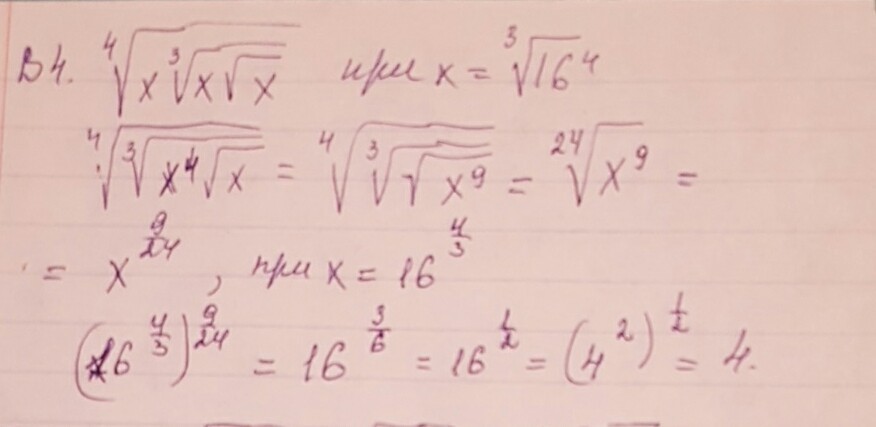 В4. ⁴√(x ³√(x √x)) при x = ³√16⁴
⁴√(³√(x⁴ √x)) = ⁴√(³√(√(x⁹))) = ²⁴√(x⁹) =
= x^(9/24), при x = 16^(4/3)
(16^(4/3))^(9/24) = 16^(3/6) = 16^(1/2) = (4²)^(1/2) = 4.